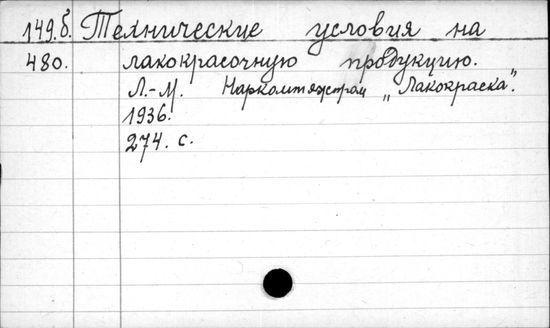 149.б. Технические условия на
480. лакокрасочную продукцию.
Л.-М. Наркомтяжпром „Лакокраска".
1936.
274. с.